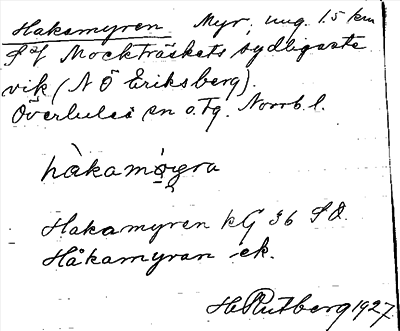 Hakamyren Myr, ung. 1.5 km
S af Mockträskets sydligaste
vik (N Ö Eriksberg).
Överluleå sn o. Tg. Norrb. l.
Hakamyren kG 36 SO
Håkamyran ek.
H Rutberg 1927.